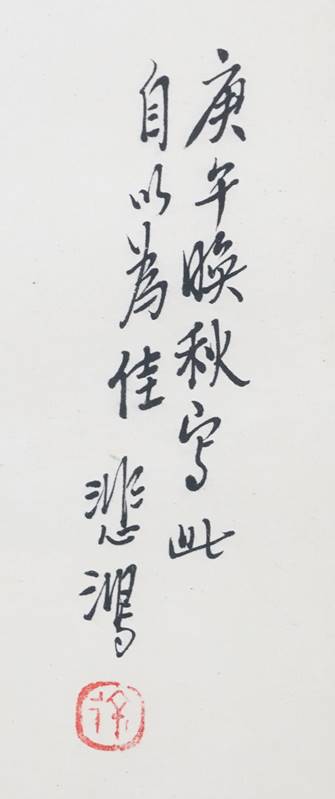 庚午晚秋写此
自以為佳
悲鴻
徐